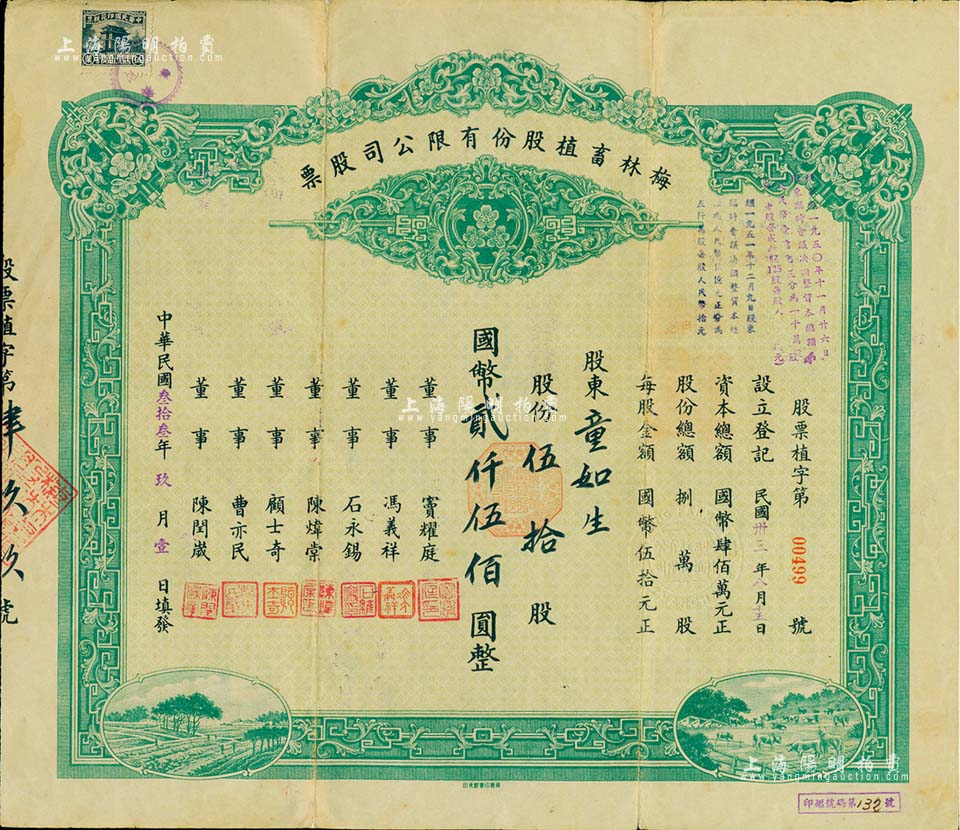 梅林畜植股份有限公司股票
股票植字第 00499 號
設立登記 民國卅三年八月 日
資本總額 國幣肆佰萬元正
股份總額 捌萬股
每股金額 國幣伍拾元正
股東童如生
股份伍拾股
國幣貳仟伍佰圓整
董事 竇耀庭
董事 馮義祥
董事 石永錫
董事 陳煒棠
董事 顧士奇
董事 曹亦民
董事 陳閏嵗
中華民國叁拾叁年玖月壹日填發
一九五〇年十一月廿六日
東臨時會議決調整資本總額
分為一十萬股
125股每股人
一九五一年十二月九日股東
臨時會議決調整資本總
股每股人民幣拾元
股票植字第肆玖玖號
印鑑號碼第132號
上海陽明拍賣
www.yangmingauction.com
上海陽明拍賣
www.yangmingauction.com
上海陽明拍賣
www.yangmingauction.com